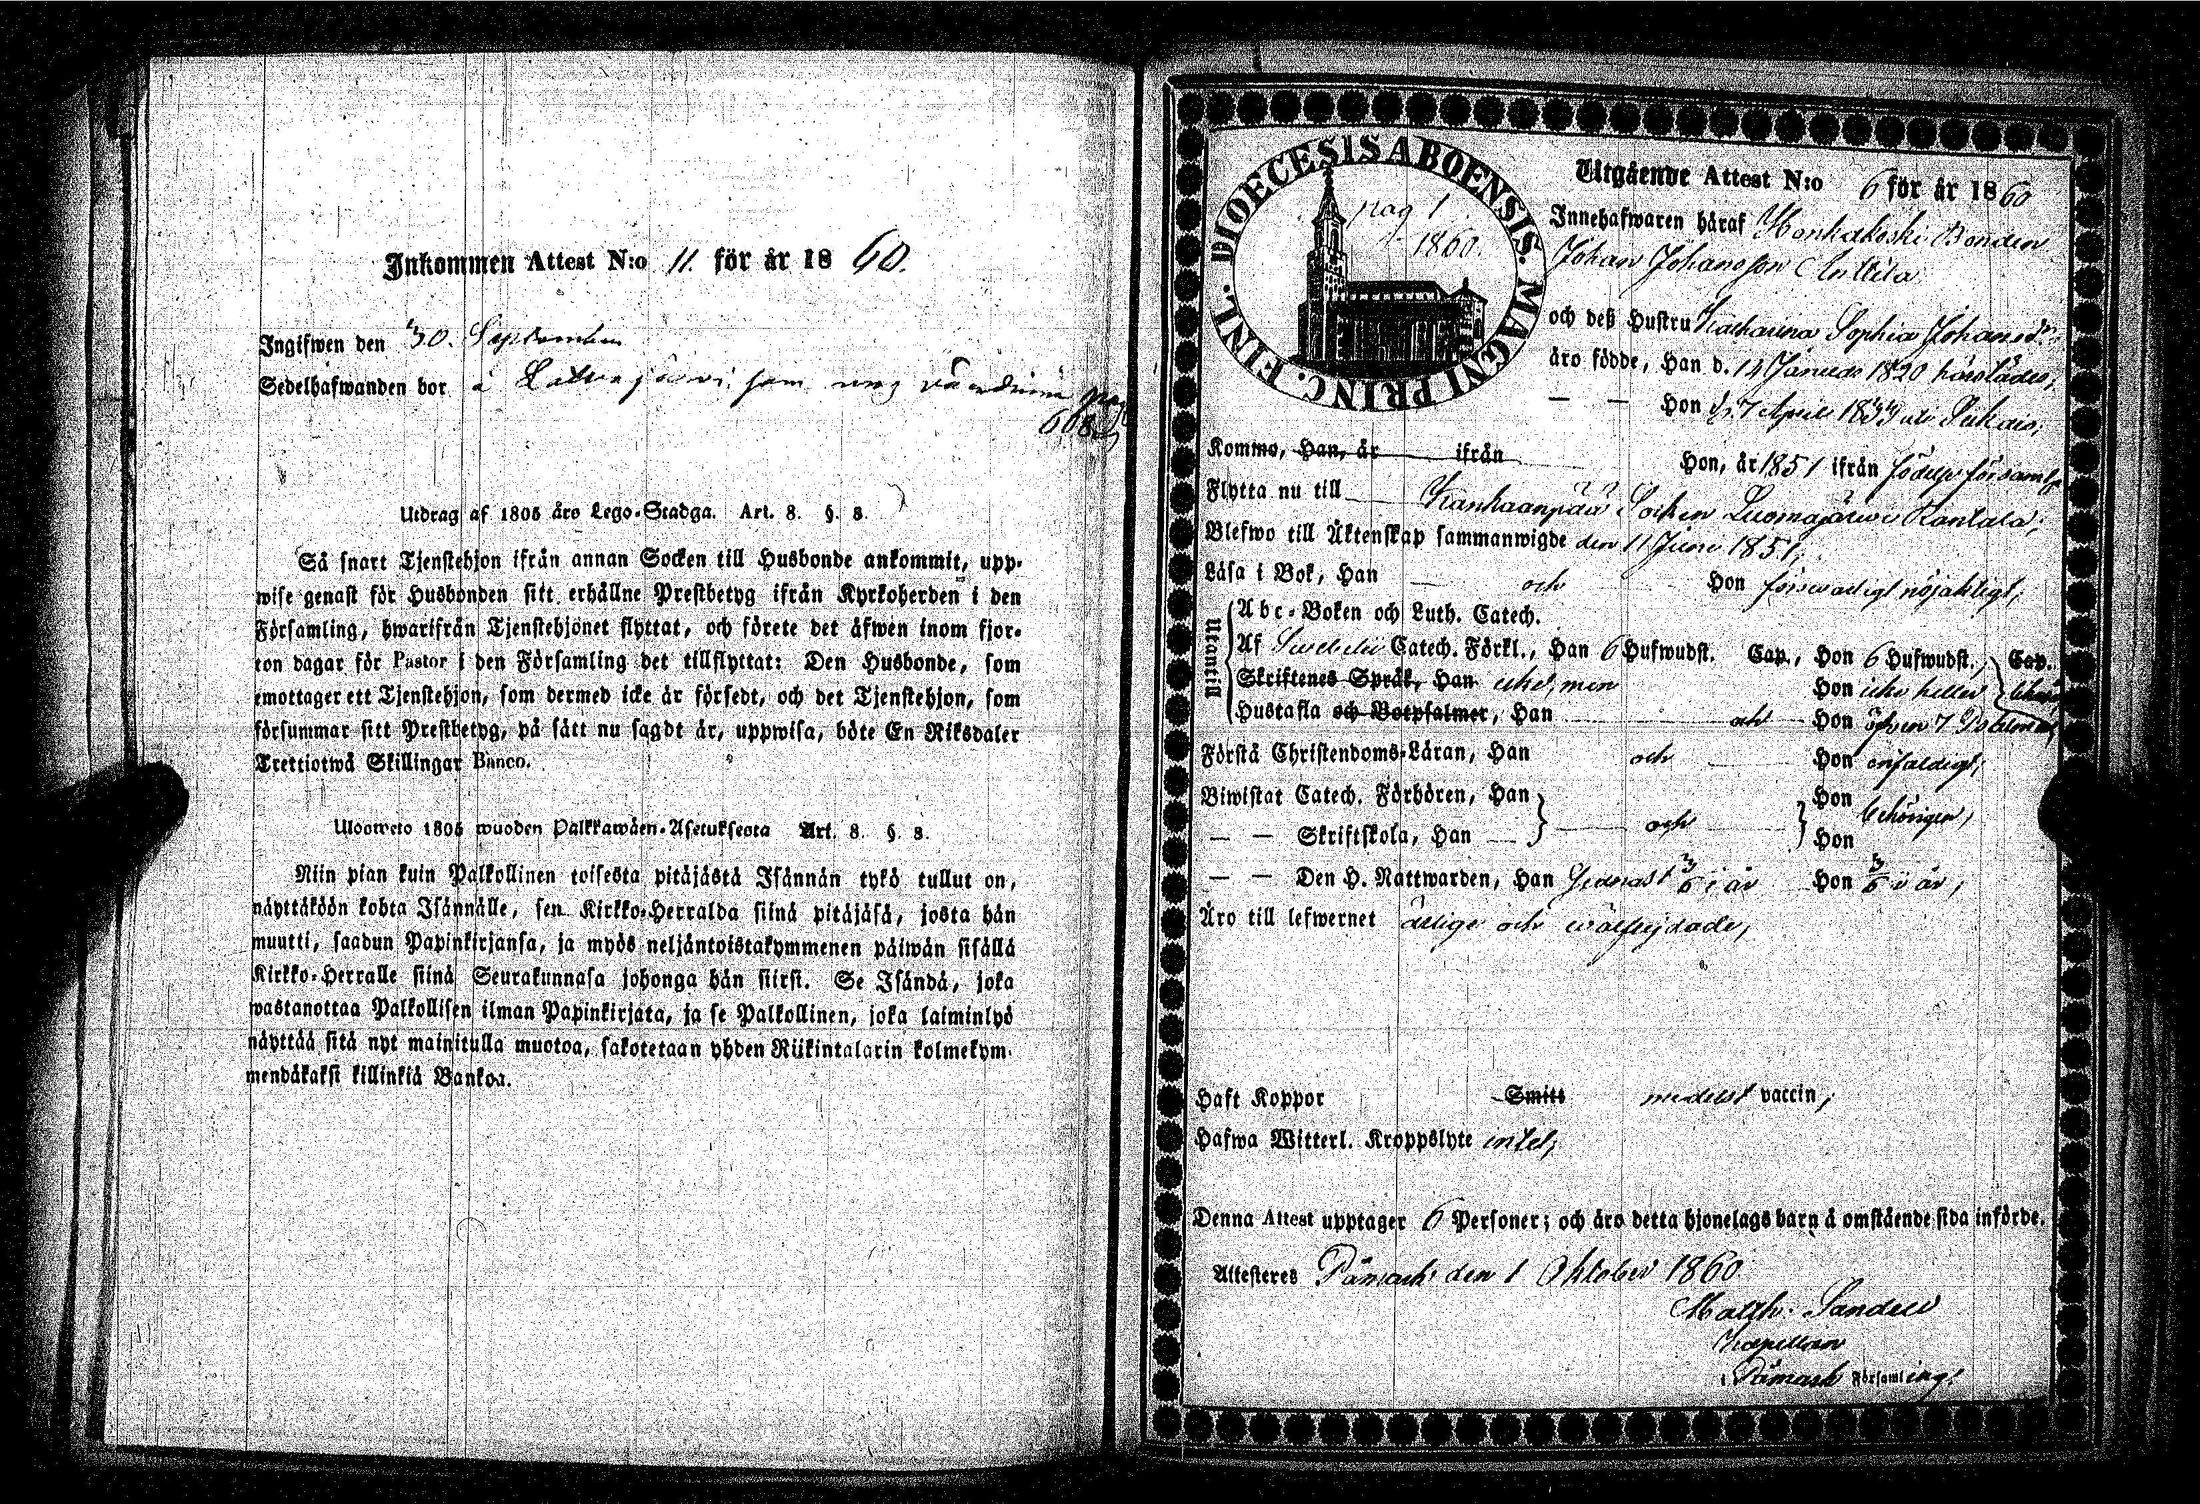 Inkommen Attest N:o 11. för år 1860.
Ingifwen den 30. September
Sedelhafwanden bor å
608
Utdrag af 1805 års Lego-Stadga. Art. 8. §. 8.
Så snart Tjenstehjon ifrån annan Socken till Husbonde ankommit, upp-
wise genast för Husbonden sitt erhållne Prestbetyg ifrån Kyrkoherden i den
Församling, hwarifrån Tjenstehjonet flyttat, och förete det äfwen inom fjor-
ton dagar för Pastor i den Församling det tillflyttat: Den Husbonde, som
emottager ett Tjenstehjon, som dermed icke är försedt, och det Tjenstehjon, som
försummar sitt Prestbetyg, på sätt nu sagdt är, uppwisa, böte En Riksdaler
Trettiotwå Skillingar Banco.
Ulosweto 1805 wuoden Palkkawäen-Asetuksesta Art. 8. §. 8.
Niin pian kuin Palkollinen toisesta pitäjästä Isännän tykö tullut on,
näyttäköön kohta Isännälle, sen Kirkko-Herralda siinä pitäjäsä, josta hän
muutti, saadun Papinkirjansa, ja myös neljäntoistakymmenen päiwän sisällä
Kirkko-Herralle siinä Seurakunnasa johonga hän siirsi. Se Isändä, joka
wastanottaa Palkollisen ilman Papinkirjata, ja se Palkollinen, joka laiminlyö
näyttää sitä nyt mainitulla muotoa, sakotetaan yhden Riikintalarin kolmekym-
mendäkaksi killinkiä Bankoa.
DIOECESIS ABOENSIS. MAGNI PRINC. FINL.
pag 1
1860.
Utgående Attest N:o 6 för år 1860
Innehafwaren häraf Honkakoski Bonden
Johan Johansson Anttila
och deß Hustru Katharina Sophia Johansdr,
äro födde, Han d. 14 Januari 1820 härstädes,
— — Hon d. 7 April 1834
Komme, Han, år ifrån Hon, år 1851 ifrån födelse församl.
Flytta nu till Kankaanpää Socken Luomajärwi Rantala;
Blefwo till Äktenskap sammanwigde den 11 Juni 1851,
Läsa i Bok, Han — och — Hon förswarligt nöjaktigt,
Utantill
Abc-Boken och Luth. Catech.
Af Svebelii Catech. Förkl., Han 6 Hufwudst. Cap., Hon 6 Hufwudst., Cap.
Skriftenes Språk, Han icke, men Hon icke heller
Hustafla och Botpsalmer, Han — och — Hon äfven 7 Psalmer,
Förstå Christendoms-Läran, Han och Hon enfaldigt,
Biwistat Catech. Förhören, Han Hon
— — Skriftskola, Han — och — Hon behörigen,
— — Den H. Nattwarden, Han senast 3/6 i år Hon 3/6 i år,
Äro till lefwernet ärlige och wälfrejdade,
Haft Koppor Smitt medelst vaccin,
Hafwa Witterl. Kroppslyte intet,
Denna Attest upptager 6 Personer; och äro detta hjonelags barn å omstående sida införde.
Attesteres Påmark den 1 Oktober 1860.
Matth. Sandell
Kapellan
i Påmark Församling.